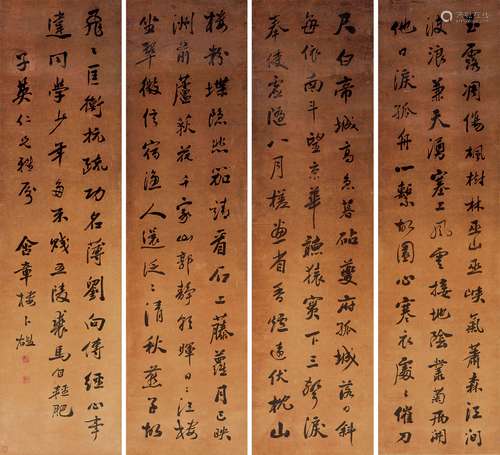 玉露凋傷楓樹林巫山巫峽氣蕭森江間
波浪兼天湧塞上風雲接地陰叢菊兩開
他日淚孤舟一繫故園心寒衣處〻催刀
尺白帝城高急暮砧夔府孤城落日斜
每依南斗望京華聽猿實下三聲淚
奉使虛隨八月槎畫省香爐違伏枕山
樓粉堞隱悲笳請看石上藤蘿月已映
洲前蘆荻花千家山郭靜朝暉日〻江樓
坐翠微信宿漁人還泛〻清秋燕子故
飛〻匡衡抗疏功名薄劉向傳經心事
違同學少年多不賤五陵裘馬自輕肥
子英仁兄雅屬